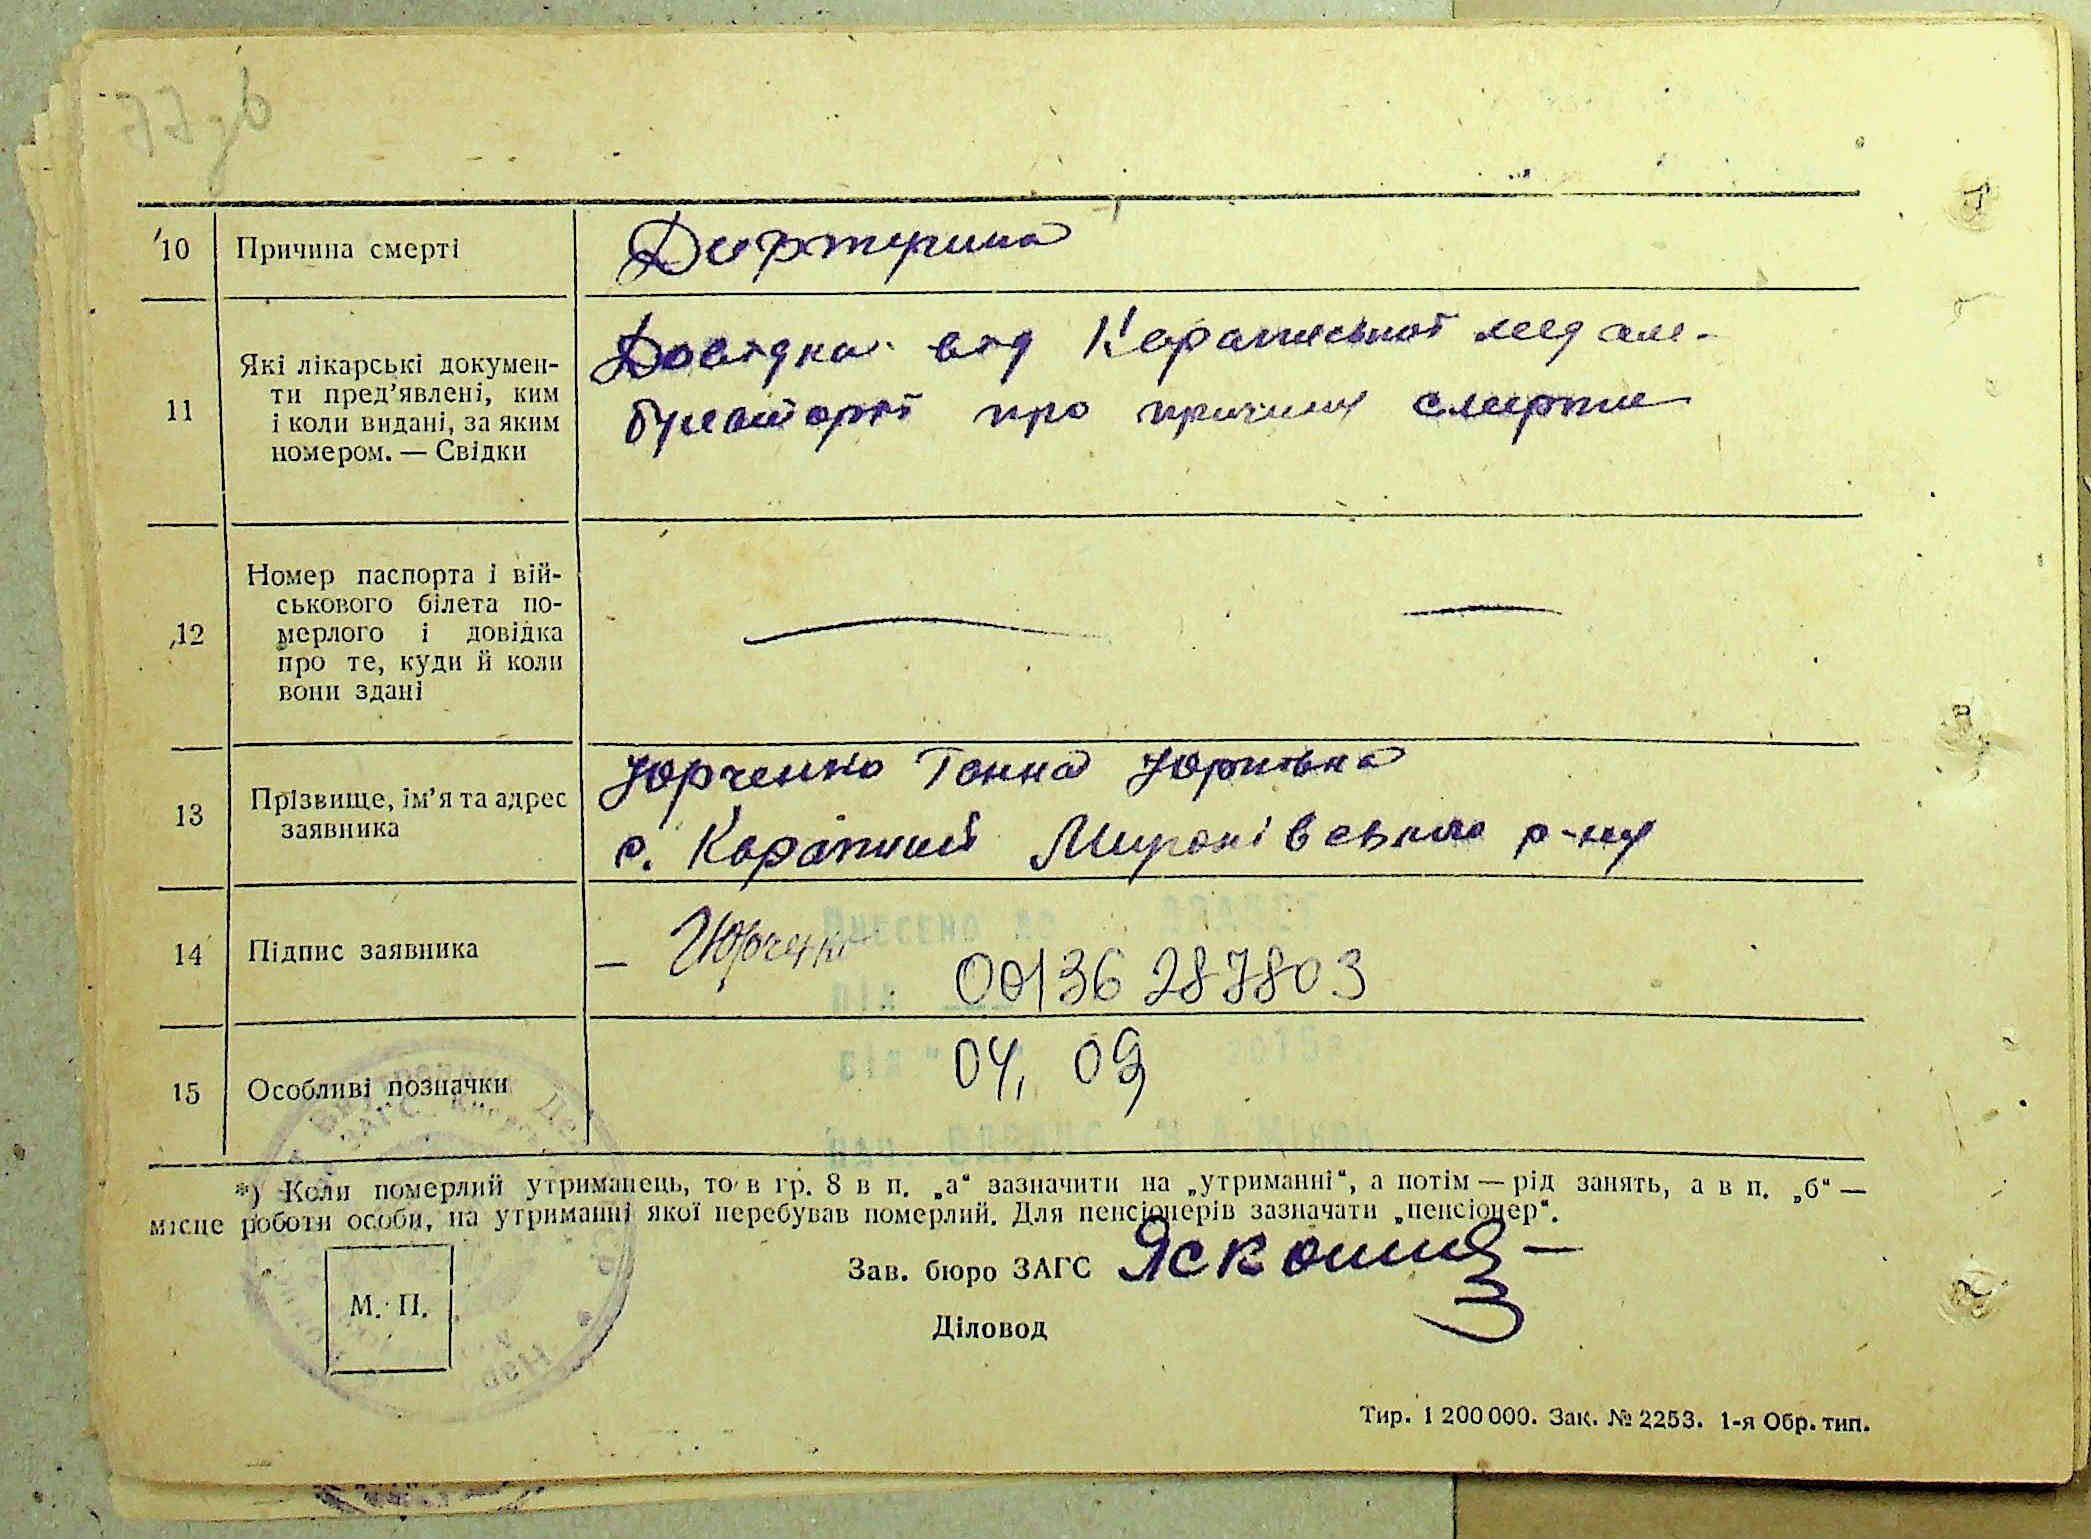 10 Причина смерті Дифтерина
11 Які лікарські докумен-
ти пред’явлені, ким
і коли видані, за яким
номером. — Свідки
Довідка від Караписької медам-
булаторії про причину смерти
12 Номер паспорта і вій-
ськового білета по-
мерлого і довідка
про те, куди й коли
вони здані
13 Прізвище, ім’я та адрес
заявника
Юрченко Ганна Юріївна
с. Карапиші Миронівського р-ну
14 Підпис заявника — ГЮрченко
Внесено до
00136287803
від
15 Особливі позначки 04, 09
2015
*) Коли померлий утриманець, то в гр. 8 в п. „а“ зазначити на „утриманні“, а потім — рід занять, а в п. „б“ —
місце роботи особи, на утриманні якої перебував померлий. Для пенсіонерів зазначати „пенсіонер“.
Зав. бюро ЗАГС
М. П.
Діловод
Тир. 1 200 000. Зак. № 2253. 1-я Обр. тип.